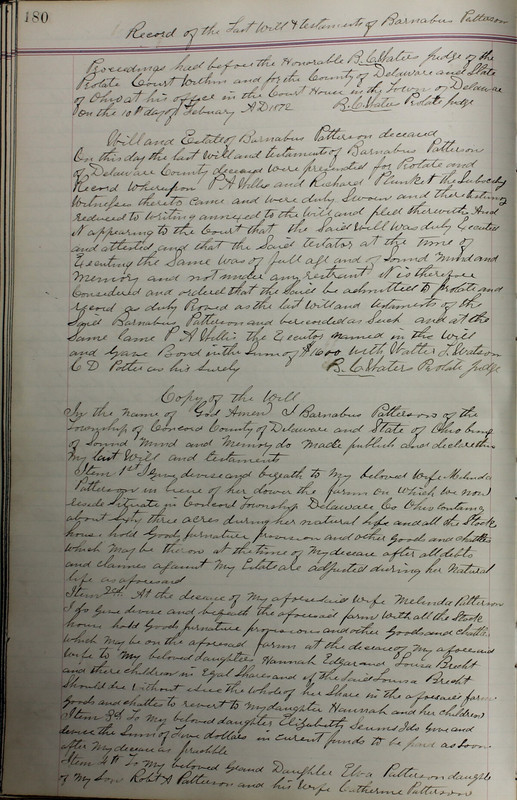 180
Record of the Last Will & testaments of Barnabus Patterson
Proceedings had before the Honorable B. C. Waters Judge of the
Probate Court Within and for the County of Delaware and State
of Ohio at his office in the Court House in the Town of Delaware
on the 10th day of Febuary A D 1872 B. C. Waters Probate Judge
Will and Estate of Barnabus Patterson deceased
On this day the last Will and testament of Barnabus Patterson
of Delaware County deceased were presented for Probate and
Record Whereupon P. A. Willis and Richard Plunket the Subscribing
Witnesses thereto came and were duly Sworn and their testimony
reduced to Writing annexed to the Will and filed therewith And
it appearing to the Court that the Said Will was duly Executed
and attested and that the Said testator at the time of
Executing the Same was of full age and of Sound Mind and
Memory and not under any restraint it is therefore
Considered and ordered that the Said be admitted to probate and
record as duly Proved as the last Will and testaments of the
Said Barnabus Patterson and be recorded as Such and at the
Same Came P. A. Willis the Executor Named in the Will
and Gave Bond in the Sum of $1600 With Walter J. Watson
C D Potter as his Surety B. C. Waters Probate Judge
Copy of the Will
In the Name of God Amen I Barnabus Patterson of the
Township of Concord County of Delaware and State of Ohio being
of Sound Mind and Memory do Made publish and declare this
My last Will and testament
Item 1st I Give devise and beqeath to My beloved Wife Melinda
Patterson in liene of her dower the farm on Which We now
reside Situate in Concord Township Delaware Co Ohio Containing
about fifty three acres during her natural life and all the Stock
house hold Goods furnature provision and other Goods and chattles
Which May be theron at the time of My decease after all debts
and claimes against My Estate are adjusted during her Natural
life as aforesaid
Item 2d. At the decease of My aforesaid Wife Melinda Patterson
I do Give devise and beqeath the aforesaid farm With all the Stock
house hold Goods furnature provisions and other Goods and Chattles
Which May be on the aforesaid farm at the decease of My aforesaid
Wife to My beloved daughters Hannah Edgar and Louis Brecht
and there Children in Eqal Shares and if the Said Louisa Brecht
Should die Without issue the Whole of her Share in the aforesaid farm
Goods and chattles to revert to My daughter Hannah and her Children
Item 3d To My beloved daughter Elizabeth I do Give and
devise the Sum of Five dollars in current funds to be paid as Soon
after My decease as
Item 4th To My beloved Grand Daughter Elva Patterson daughter
of My Son Robt A Patterson and his Wife Catherine Patterson